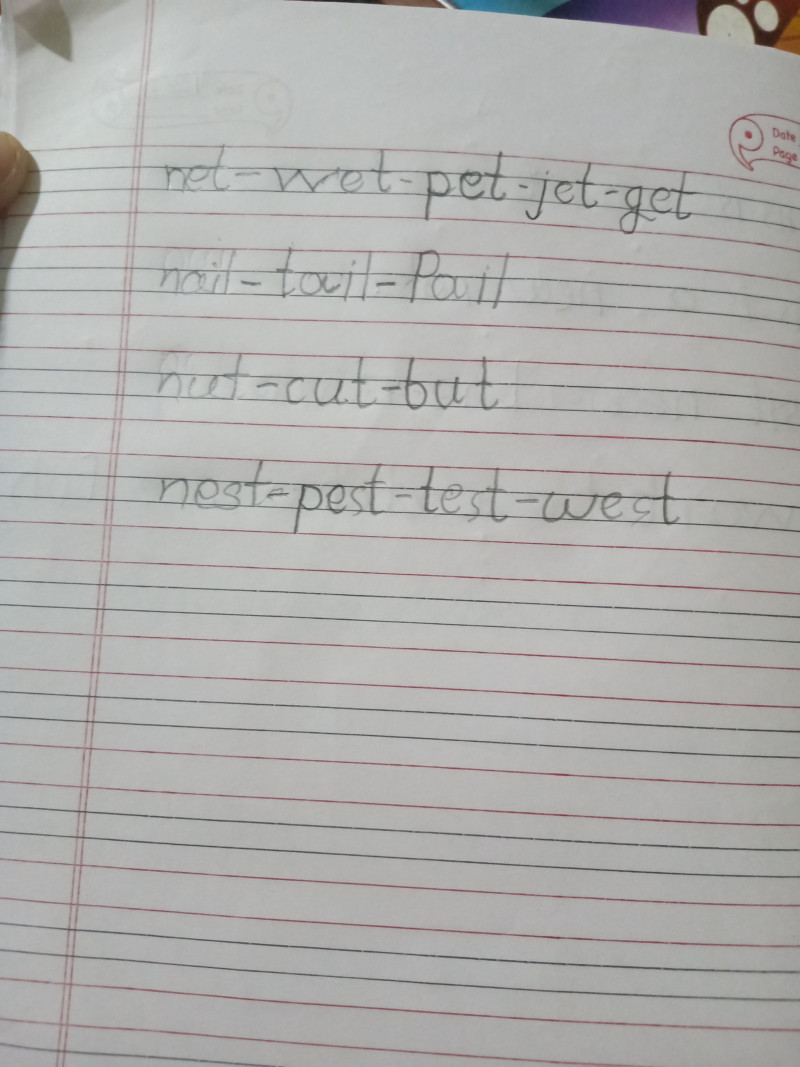 Date
Page
net - wet - pet - jet - get
nail - tail - Pail
nut - cut - but
nest - pest - test - west